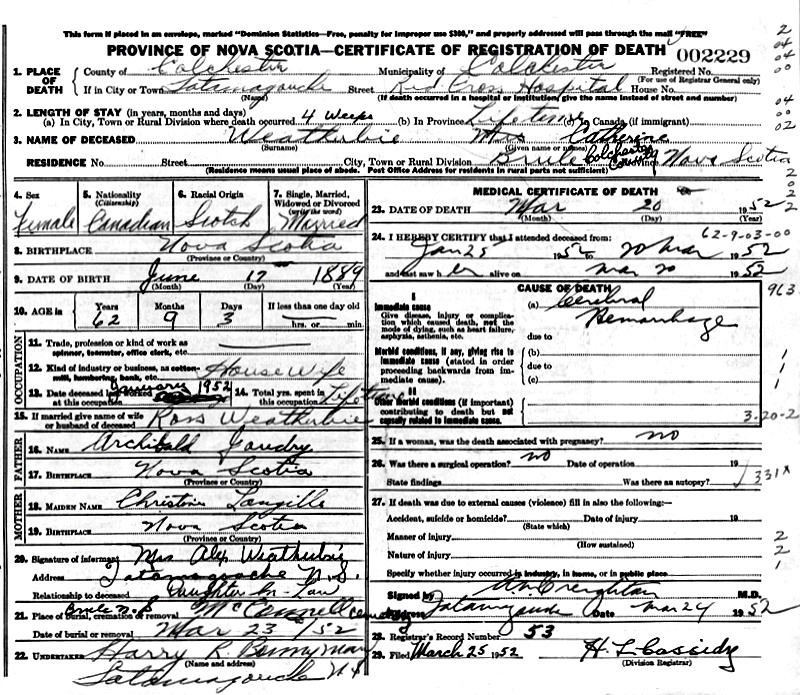 This form if placed in an envelope, marked "Dominion Statistics—Free, penalty for improper use $300," and properly addressed will pass through the mail "FREE"
PROVINCE OF NOVA SCOTIA—CERTIFICATE OF REGISTRATION OF DEATH 002229
1. PLACE OF DEATH County of Colchester Municipality of Colchester Registered No. (For use of Registrar General only)
If in City or Town Tatamagouche (Name) Street Red Cross Hospital House No.
(If death occurred in a hospital or institution, give the name instead of street and number)
2. LENGTH OF STAY (in years, months and days)
(a) In City, Town or Rural Division where death occurred 4 Weeks (b) In Province Lifetime (c) In Canada (if immigrant)
3. NAME OF DECEASED Weatherbie Mrs Catherine
(Surname) (Given name or names)
RESIDENCE No. Street City, Town or Rural Division Brule Colchester County Nova Scotia
(Residence means usual place of abode. Post Office Address for residents in rural parts not sufficient)
4. Sex Female
5. Nationality (Citizenship) Canadian
6. Racial Origin Scotch
7. Single, Married, Widowed or Divorced (write the word) Married
8. BIRTHPLACE Nova Scotia
(Province or Country)
9. DATE OF BIRTH June 17 1889
(Month) (Day) (Year)
10. AGE in Years 62 Months 9 Days 3 If less than one day old hrs. or min.
OCCUPATION
11. Trade, profession or kind of work as spinner, teamster, office clerk, etc.
12. Kind of industry or business, as cotton-mill, lumbering, bank, etc. House Wife
13. Date deceased last worked at this occupation January 1952
14. Total yrs. spent in this occupation Lifetime
15. If married give name of wife or husband of deceased Ross Weatherbie
FATHER
16. NAME Archibald Gaudry
17. BIRTHPLACE Nova Scotia
(Province or Country)
MOTHER
18. MAIDEN NAME Christine Langille
19. BIRTHPLACE Nova Scotia
(Province or Country)
20. Signature of informant Mrs Alex Weatherbie
Address Tatamagouche N.S.
Relationship to deceased Daughter-In-Law
21. Place of burial, cremation or removal Brule N.S McConnell cemetery
Date of burial or removal Mar 23 /52
22. UNDERTAKER Harry R. Bonnyman
(Name and address)
Tatamagouche N S
MEDICAL CERTIFICATE OF DEATH
23. DATE OF DEATH Mar 20 1952
(Month) (Day) (Year)
24. I HEREBY CERTIFY that I attended deceased from: 62-9-03-00
Jan 25 1952 to 20 Mar 1952
and last saw her alive on Mar 20 1952
CAUSE OF DEATH 963
I
Immediate cause
Give disease, injury or complication which caused death, not the mode of dying, such as heart failure, asphyxia, asthenia, etc.
(a) Cerebral Hemorrhage
due to
Morbid conditions, if any, giving rise to immediate cause (stated in order proceeding backwards from immediate cause).
(b)
due to
(c)
II
Other morbid conditions (if important) contributing to death but not causally related to immediate cause.
3-20-2
25. If a woman, was the death associated with pregnancy? no
26. Was there a surgical operation? no Date of operation 19
State findings Was there an autopsy? 331x
27. If death was due to external causes (violence) fill in also the following:—
Accident, suicide or homicide? Date of injury 19
(State which)
Manner of injury 2
(How sustained)
Nature of injury 2
Specify whether injury occurred in industry, in home, or in public place 1
Signed by Creighton M.D.
Address Tatamagouche Date Mar 24 1952
28. Registrar's Record Number 53
29. Filed March 25 1952 H. L. Cassidy
(Division Registrar)